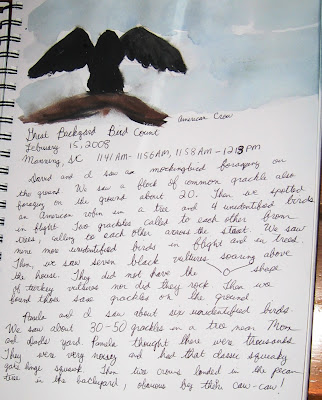 American Crow
Great Backyard Bird Count
February 15, 2008
Manning, SC 11:41 AM - 11:56 AM, 11:58 AM - 12:13 PM
David and I saw a mockingbird foraging on
the ground. We saw a flock of common grackle also
foraging on the ground about 20. Then we spotted
an American robin in a tree and 4 unidentified birds
in flight. Two grackles called to each other from
trees, calling to each other across the street. We saw
nine more unidentified birds in flight and in trees.
Then, we saw seven black vultures, soaring above
the house. They did not have the shape
of turkey vultures nor did they rock. Then we
found those same grackles on the ground.
Pamela and I saw about six unidentified birds.
We saw about 30-50 grackles in a tree near Mom
and Dad's yard. Pamela thought there were thousands.
They were very noisey and had that classic squeaky
gate hinge squawk. Then two crows landed in the pecan
tree in the backyard, obvious by their caw-caw!